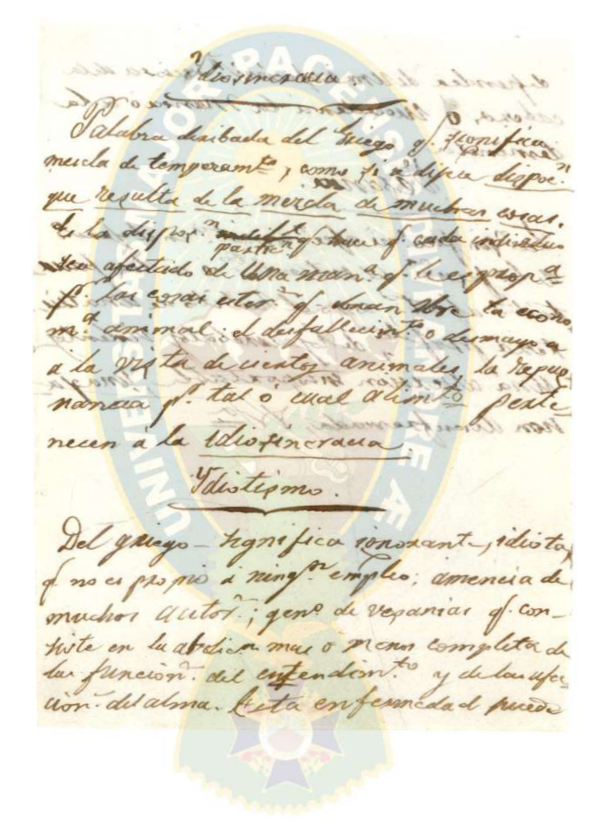 Ydiosincracia
Palabra deribada del Griego q.e significa
mezcla de temperam.to, como si se dijera dispoc.n
que resulta de la mezcla de muchas cosas.
Es la dispos.n q.e hace q.e cada individuo
sea afectado de una man.a q.e le es prop.a
p.r las cosas ester.s q.e obran sobre la econo
m.a animal: el desfallecim.to o desmayo a
a la vista de ciertos animales, la repug
nancia p.r tal o cual alim.to perte
necen a la idiosincracia.
Ydiotismo.
Del griego - significa ignorante, idiota,
q.e no es propio á ning.n empleo; amencia de
muchos autor.s; gen.o de vesanias q.e con-
siste en la abolic.n mas o menos completa de
las funcion.s del entendim.to y de las afec-
cion.s del alma. Esta enfermedad puede
UNIVERSITAS MAJOR PACENSIS DIVI ANDRE Æ